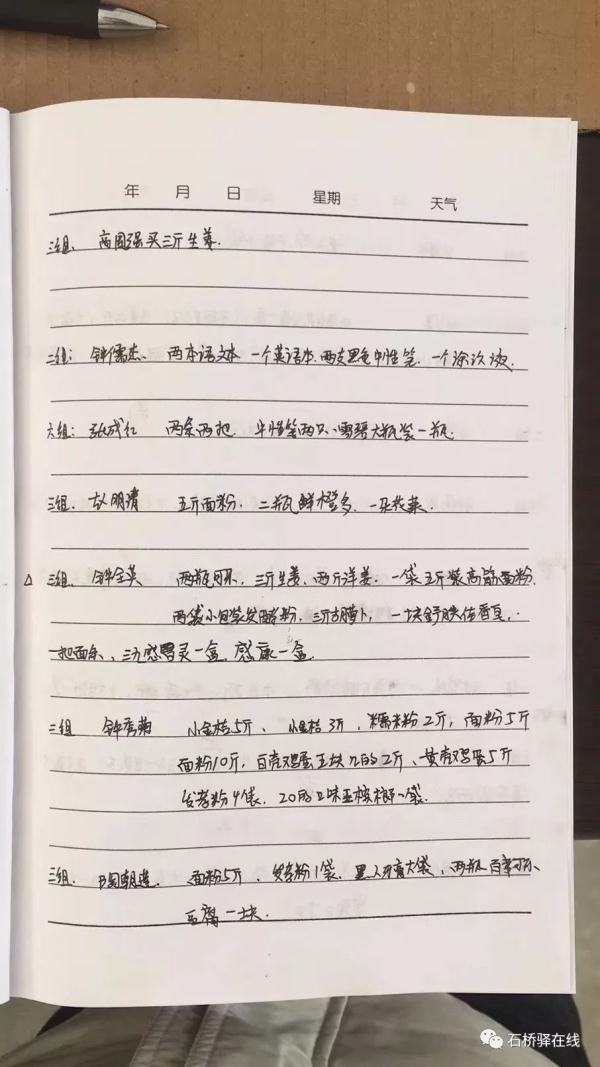 年 月 日 星期 天气
三组、高国强买三斤生姜.
二组: 钟儒杰、 两本语文本 一个英语本、两支黑色中性笔、一个涂改液.
六组: 张成仁 两条 中性笔两只、雪碧大瓶装一瓶.
三组、赵明清 五斤面粉、二瓶鲜橙多、一朵花菜.
△ 三组、钟全英 两瓶可乐、三斤生姜、两斤洋姜、一袋五斤装高筋面粉、
两袋小包装发酵粉、三斤胡萝卜, 一块舒肤佳香皂、
一把面条、三九感冒灵一盒, 感康一盒.
三组 钟秀菊 小金桔5斤、 小金桔3斤, 糯米粉2斤, 面粉5斤
面粉10斤, 白壳鸡蛋五块几的2斤、黄壳鸡蛋5斤
发孝粉4袋、20的口味王槟榔一袋.
三组、陶朝 面粉5斤、发孝粉1袋、黑人牙膏大袋、两瓶百事可乐
豆腐一块.
石桥驿在线